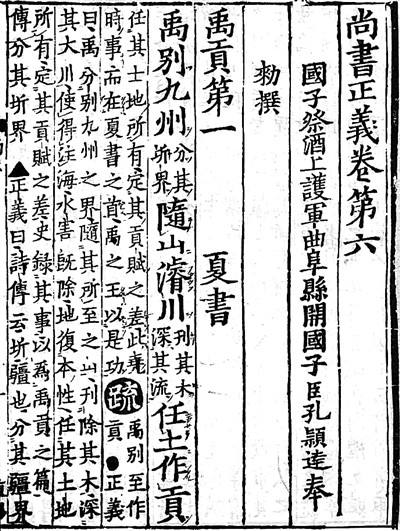 尚書正義卷第六
國子祭酒上護軍曲阜縣開國子臣孔穎達奉
勑撰
禹貢第一 夏書
禹別九州分其圻界隨山濬川刊其木深其流任土作貢
任其土地所有定其貢賦之差此堯
時事而在夏書之首禹之王以是功疏禹別至作貢●正義
曰禹分別九州之界隨其所至之山刊除其木深
其大川使得注海水害旣除地復本性任其土地
所有定其貢賦之差史錄其事以爲禹貢之篇
傳分其圻界▲正義曰詩傳云圻疆也分其疆界